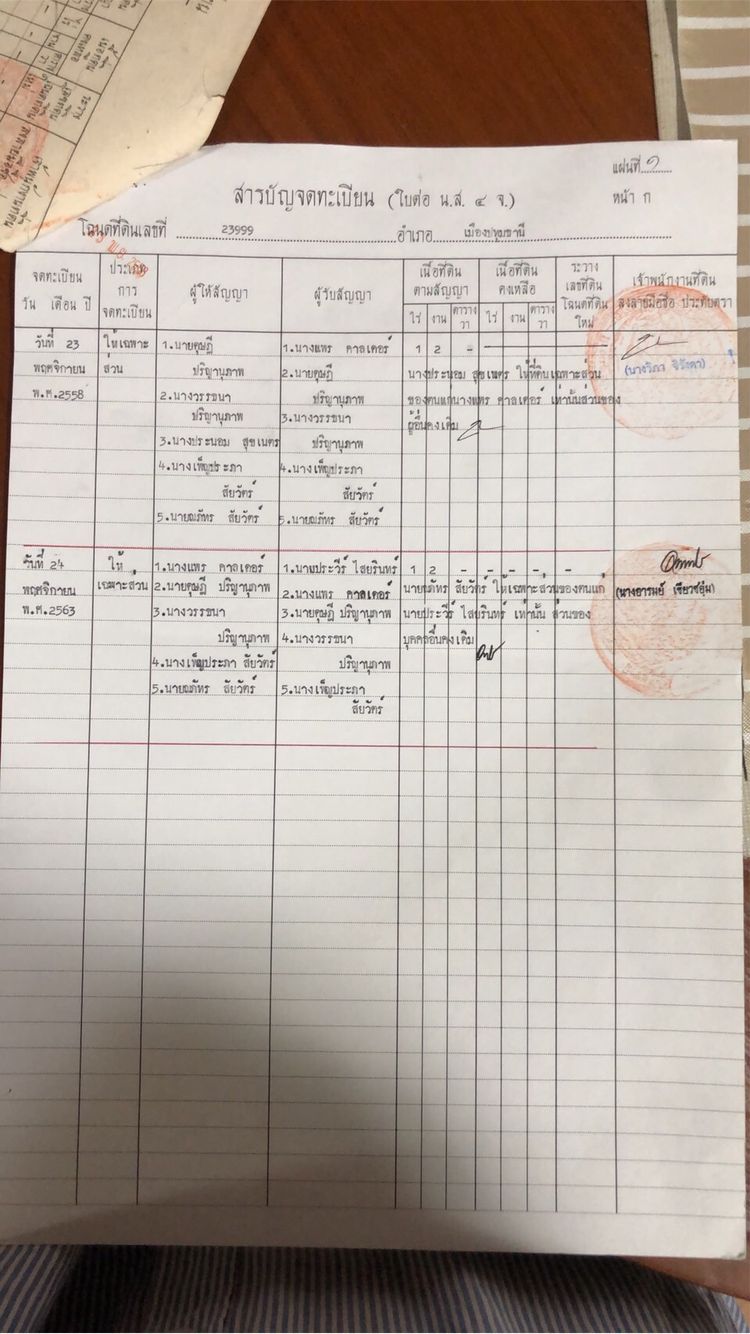 แผ่นที่ ๑
สารบัญจดทะเบียน (ใบต่อ น.ส. ๔ จ.)
หน้า ก
โฉนดที่ดินเลขที่ 23999 อำเภอ เมืองปทุมธานี
จดทะเบียน
วัน เดือน ปี
ประเภท
การ
จดทะเบียน
ผู้ให้สัญญา
ผู้รับสัญญา
เนื้อที่ดิน
ตามสัญญา
ไร่ งาน ตาราง
วา
เนื้อที่ดิน
คงเหลือ
ไร่ งาน ตาราง
วา
ระวาง
เลขที่ดิน
โฉนดที่ดิน
ใหม่
เจ้าพนักงานที่ดิน
ลงลายมือชื่อ ประทับตรา
วันที่ 23
พฤศจิกายน
พ.ศ.2558
ให้เฉพาะ
ส่วน
1.นายดุษฎี
ปริญานุภาพ
2.นางวรรธนา
ปริญานุภาพ
3.นางประนอม สุขเนตร
4.นางเพ็ญประภา
สัยวัตร์
5.นายณภัทร สัยวัตร์
1.นางแพร คาลเดอร์
2.นายดุษฎี
ปริญานุภาพ
3.นางวรรธนา
ปริญานุภาพ
4.นางเพ็ญประภา
สัยวัตร์
5.นายณภัทร สัยวัตร์
1 2 -
นางประนอม สุขเนตร ให้ที่ดินเฉพาะส่วน
ของตนแก่นางแพร คาลเดอร์ เท่านั้นส่วนของ
ผู้อื่นคงเดิม
วันที่ 24
พฤศจิกายน
พ.ศ.2563
ให้
เฉพาะส่วน
1.นางแพร คาลเดอร์
2.นายดุษฎี ปริญานุภาพ
3.นางวรรธนา
ปริญานุภาพ
4.นางเพ็ญประภา สัยวัตร์
5.นายณภัทร สัยวัตร์
1.นายประวีร์ ไสยรินทร์
2.นางแพร คาลเดอร์
3.นายดุษฎี ปริญานุภาพ
4.นางวรรธนา
ปริญานุภาพ
5.นางเพ็ญประภา
สัยวัตร์
1 2 - - - - -
นายณภัทร สัยวัตร์ ให้เฉพาะส่วนของตนแก่
นายประวีร์ ไสยรินทร์ เท่านั้น ส่วนของ
บุคคลอื่นคงเดิม